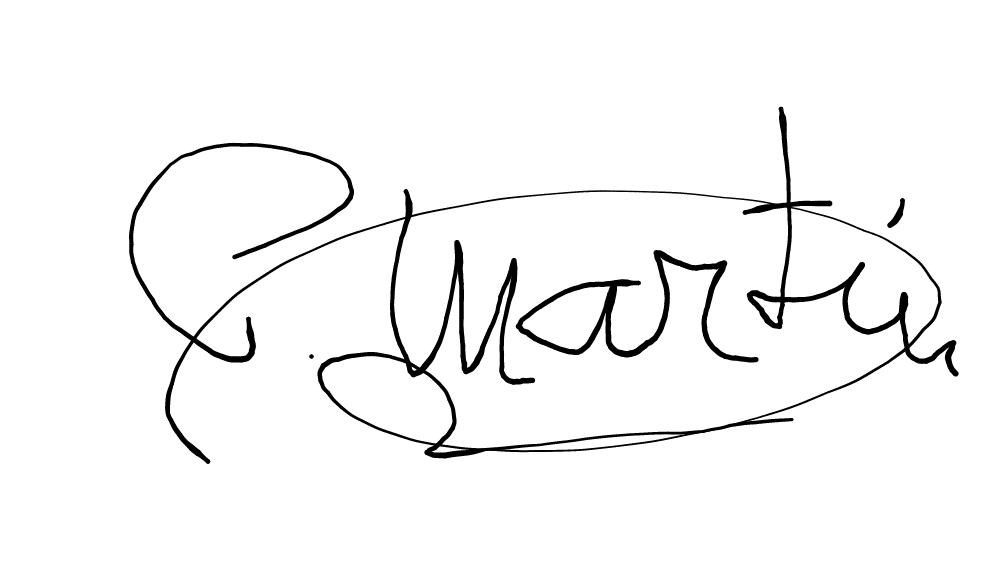 P. Martin